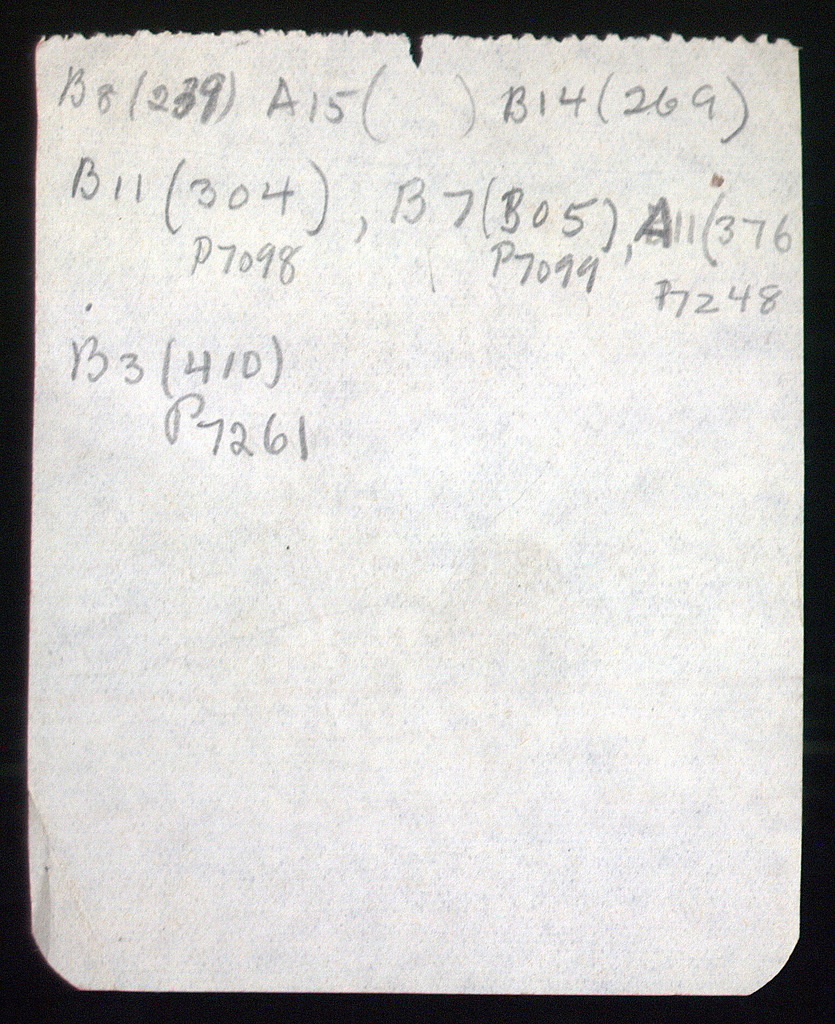 B8 (239) A15 (     ) B14 (269)
B11 (304), B7 (305), A11 (376
P7098 P7099 P7248
B3 (410)
P7261